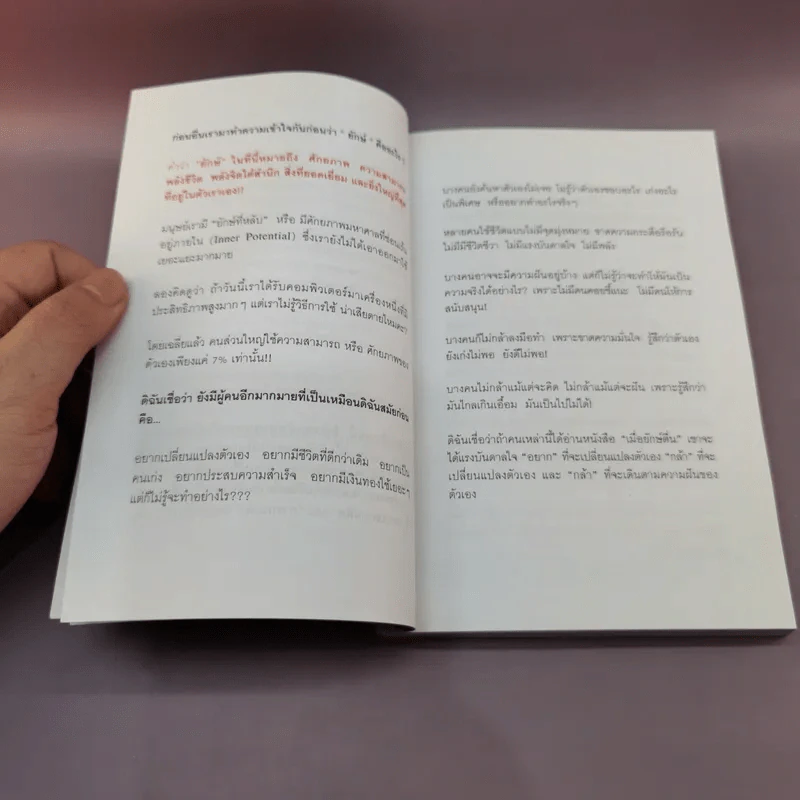 ก่อนอื่นเรามาทำความเข้าใจกันก่อนว่า " ยักษ์ " คืออะไร ?
คำว่า "ยักษ์" ในที่นี้หมายถึง ศักยภาพ ความสามารถ
พลังชีวิต พลังจิตใต้สำนึก สิ่งที่ยอดเยี่ยม และยิ่งใหญ่ที่สุด
ที่อยู่ในตัวเรา!!
มนุษย์เรามี "ยักษ์ที่หลับ" หรือ มีศักยภาพมหาศาลที่ซ่อนเร้น
อยู่ภายใน (Inner Potential) ซึ่งเรายังไม่ได้เอาออกมาใช้
เยอะแยะมากมาย
ลองคิดดูว่า ถ้าวันนี้เราได้รับคอมพิวเตอร์มาเครื่องหนึ่งที่มี
ประสิทธิภาพสูงมากๆ แต่เราไม่รู้วิธีการใช้ น่าเสียดายไหมคะ?
โดยเฉลี่ยแล้ว คนส่วนใหญ่ใช้ความสามารถ หรือ ศักยภาพของ
ตัวเองเพียงแค่ 7% เท่านั้น!!
ดิฉันเชื่อว่า ยังมีผู้คนอีกมากมายที่เป็นเหมือนดิฉันสมัยก่อน
คือ...
อยากเปลี่ยนแปลงตัวเอง อยากมีชีวิตที่ดีกว่าเดิม อยากเป็น
คนเก่ง อยากประสบความสำเร็จ อยากมีเงินทองใช้เยอะๆ
แต่ก็ไม่รู้จะทำอย่างไร???
บางคนยังค้นหาตัวเองไม่เจอ ไม่รู้ว่าตัวเองชอบอะไร เก่งอะไร
เป็นพิเศษ หรืออยากทำอะไรจริงๆ
หลายคนใช้ชีวิตแบบไม่มีจุดมุ่งหมาย ขาดความกระตือรือร้น
ไม่มีชีวิตชีวา ไม่มีแรงบันดาลใจ ไม่มีพลัง
บางคนอาจจะมีความฝันอยู่บ้าง แต่ก็ไม่รู้ว่าจะทำให้มันเป็น
ความจริงได้อย่างไร? เพราะไม่มีคนคอยชี้แนะ ไม่มีคนให้การ
สนับสนุน!
บางคนก็ไม่กล้าลงมือทำ เพราะขาดความมั่นใจ รู้สึกว่าตัวเอง
ยังเก่งไม่พอ ยังดีไม่พอ!
บางคนไม่กล้าแม้แต่จะคิด ไม่กล้าแม้แต่จะฝัน เพราะรู้สึกว่า
มันไกลเกินเอื้อม มันเป็นไปไม่ได้!
ดิฉันเชื่อว่าถ้าคนเหล่านี้ได้อ่านหนังสือ "เมื่อยักษ์ตื่น" เขาจะ
ได้แรงบันดาลใจ "อยาก" ที่จะเปลี่ยนแปลงตัวเอง "กล้า" ที่จะ
เปลี่ยนแปลงตัวเอง และ "กล้า" ที่จะเดินตามความฝันของ
ตัวเอง